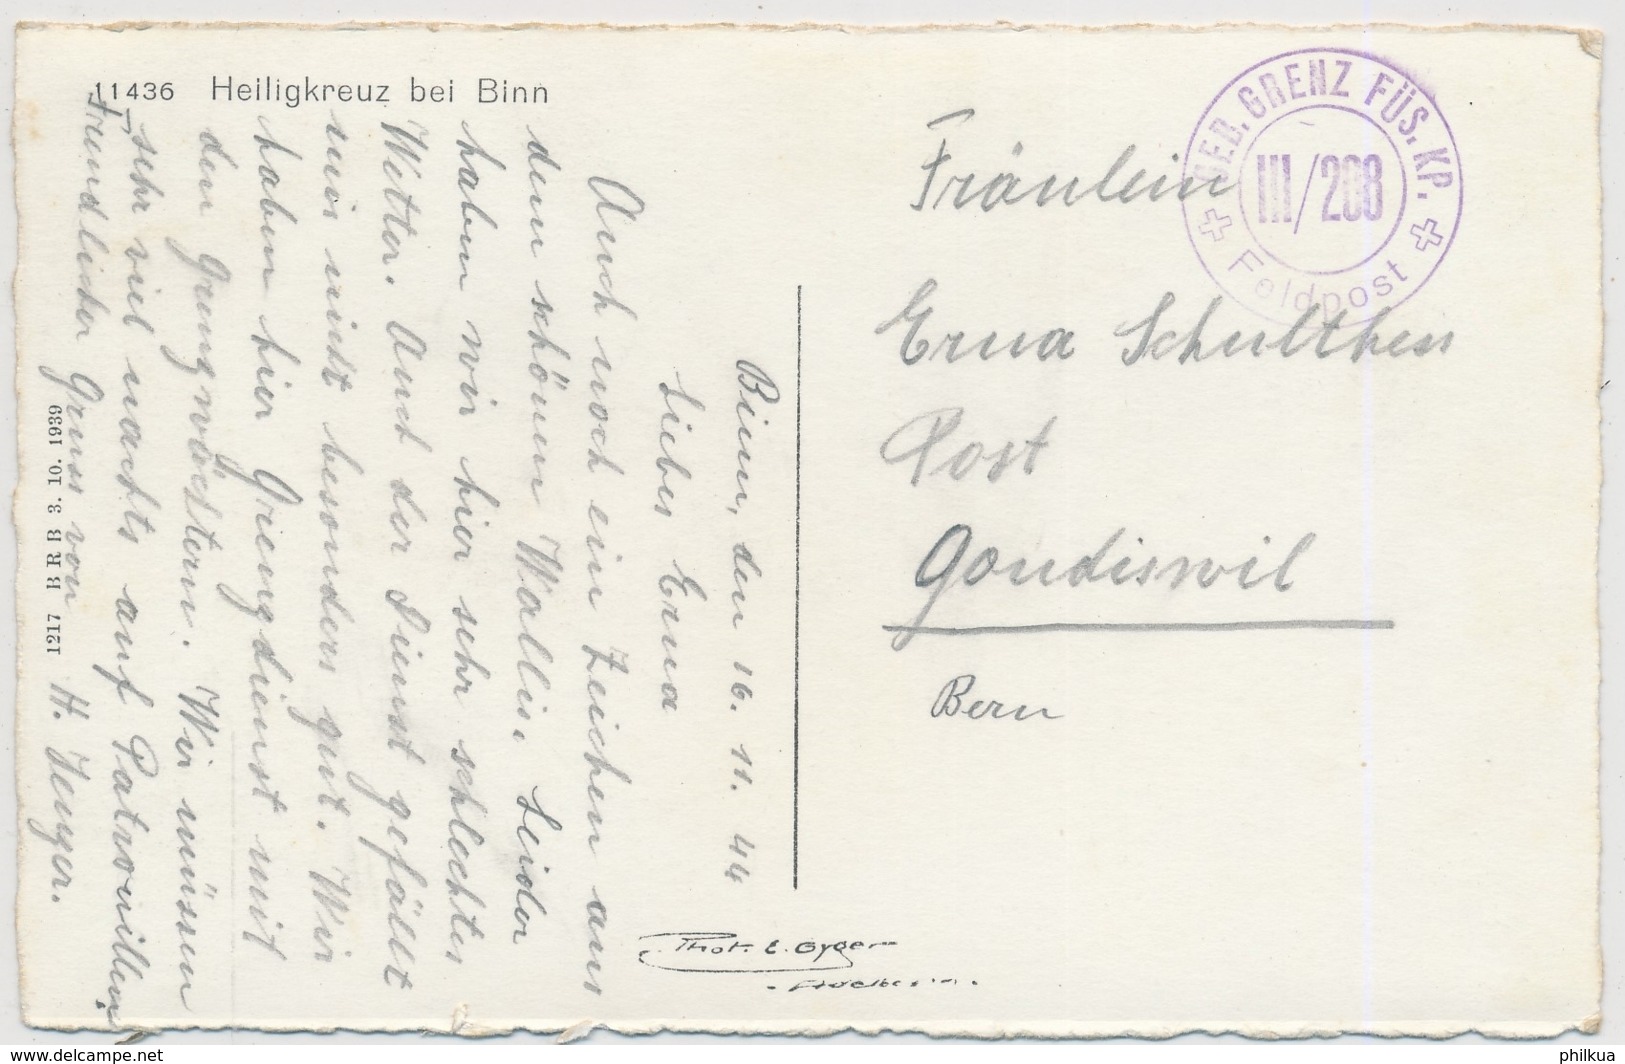 11436 Heiligkreuz bei Binn
Binn, den 16. 11. 44
Liebes Erna
Auch noch ein Zeichen aus
dem schönen Wallis. Leider
haben wir hier sehr schlechtes
Wetter. Auch der Dienst gefällt
mir nicht besonders gut. Wir
haben hier Grenzdienst mit
den Grenzwächtern. Wir müssen
sehr viel nachts auf Patrouillen.
Freundlicher Gruss von H. Zenger.
1217 B R B 3. 10. 1939
GEB. GRENZ FÜS. KP.
III/208
Feldpost
Fräulein
Erna Schulthess
Post
Gondiswil
Bern
Phot. E. Gyger
- Adelboden -
philkua
www.delcampe.net